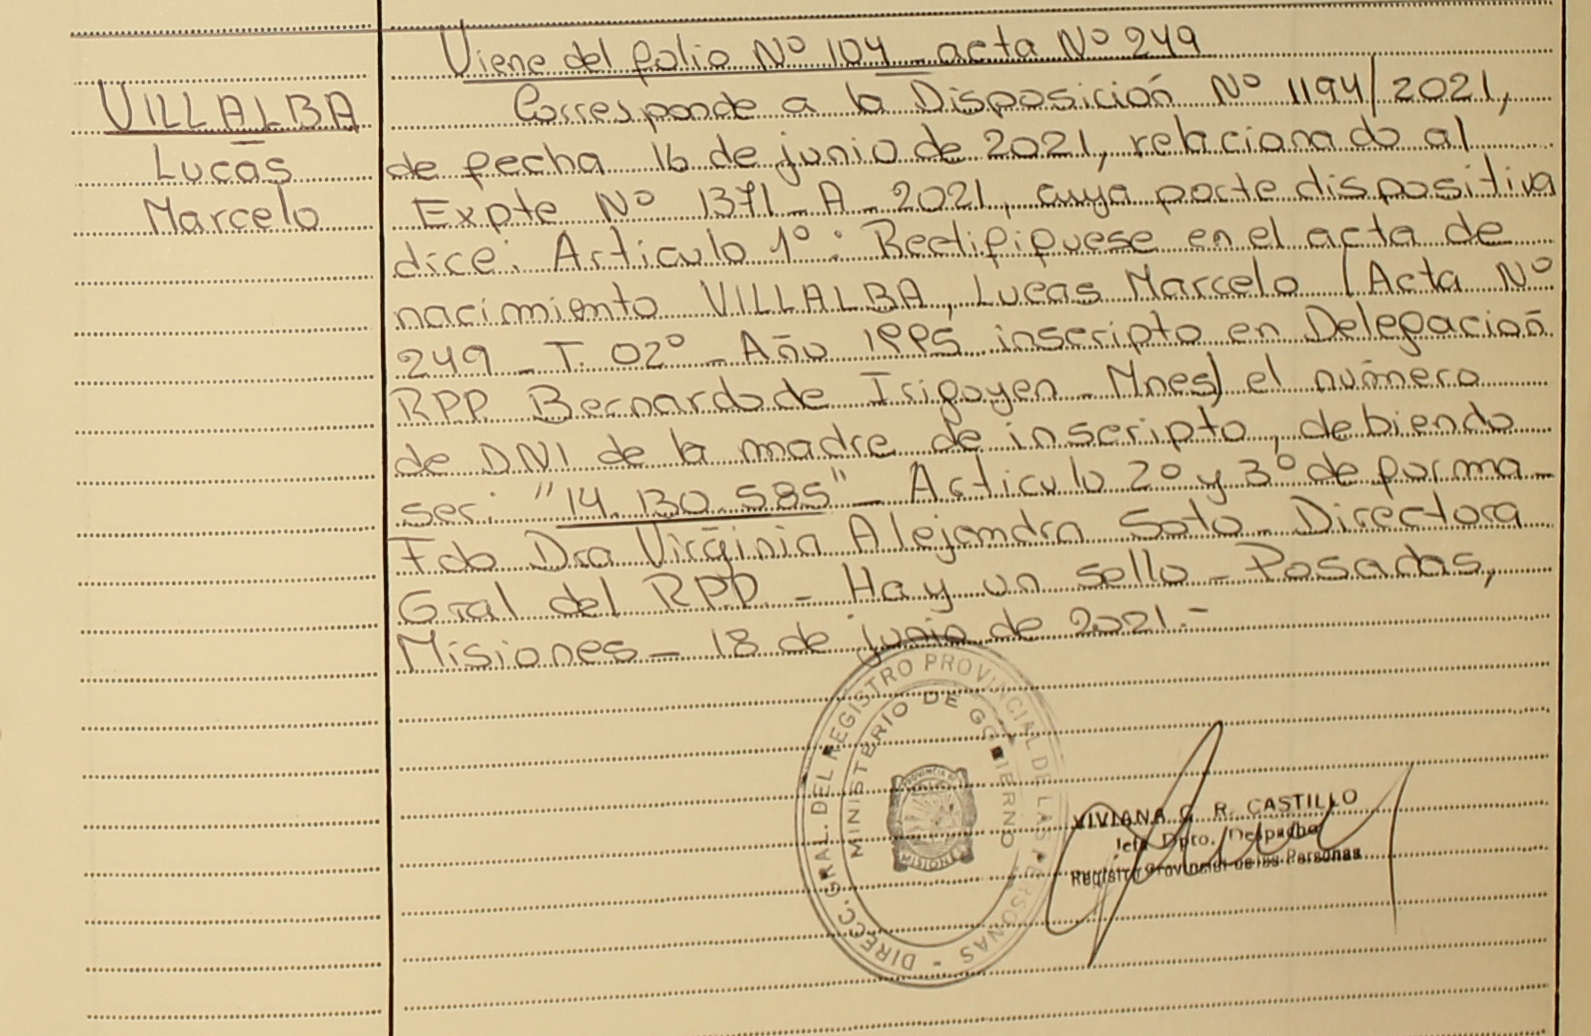 Viene del folio Nº 104 acta Nº 249
VILLALBA
Lucas
Marcelo
Corresponde a la Disposición Nº 1194/2021,
de fecha 16 de junio de 2021, relacionado al
Expte Nº 1371 - A - 2021, cuya parte dispositiva
dice: Articulo 1º: Rectififuese en el acta de
nacimiento VILLALBA, Lucas Marcelo (Acta Nº
249 - T. 02º - Año 1995 inscripto en Delegación
RPP Bernardo de Irigoyen - Mnes) el número
de DNI de la madre de inscripto, debiendo
ser: "14.130.585" - Articulo 2º y 3º de forma -
Fdo Dra Virginia Alejandra Soto - Directora
Gral del RPP - Hay un sello - Posadas,
Misiones - 18 de junio de 2021.-
DIRECC. GRAL. DEL REGISTRO PROVINCIAL DE LAS PERSONAS -
MINISTERIO DE GOBIERNO
PROVINCIA DE
MISIONES
VIVIANA G. R. CASTILLO
Jefa Dpto. Despacho
Registro Provincial de las Personas